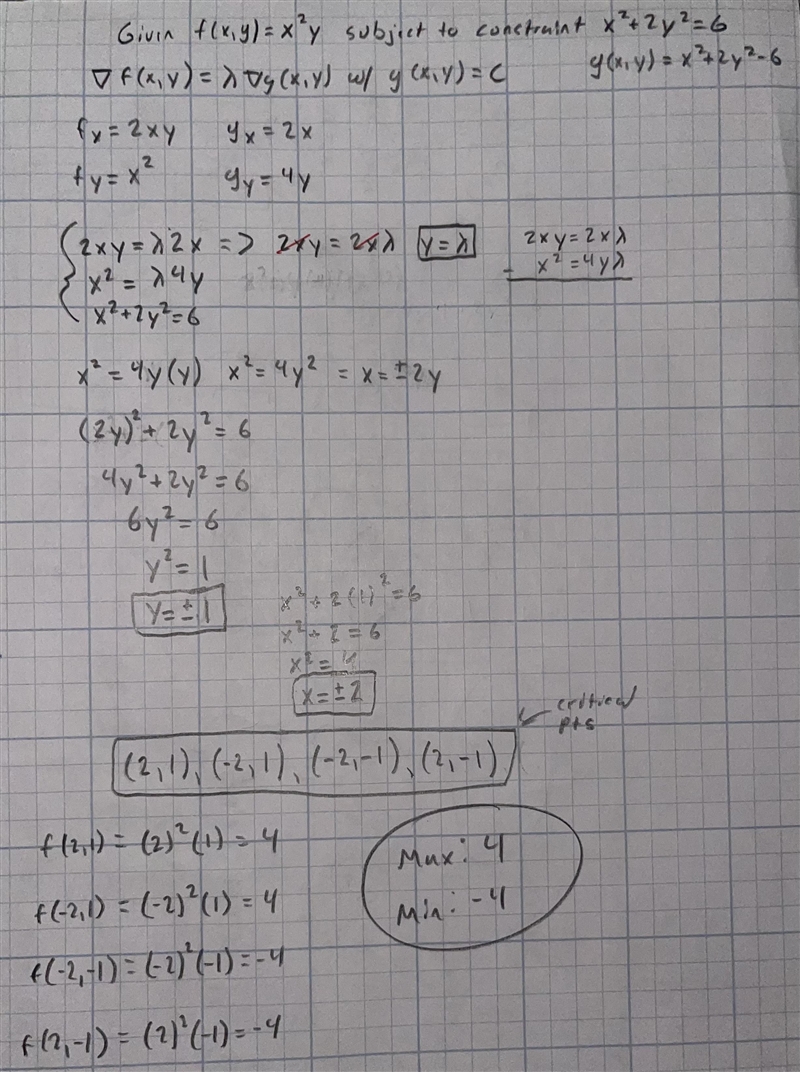 Givin f(x,y)=x²y subject to constraint x²+2y²=6
∇f(x,y)=λ∇g(x,y) w/ g(x,y)=C g(x,y)=x²+2y²-6
fx=2xy gx=2x
fy=x² gy=4y
2xy=λ2x => 2xy=2xλ y=λ
x²=λ4y
x²+2y²=6
2xy=2xλ
- x²=4yλ
x²=4y(y) x²=4y² = x=±2y
(2y)²+2y²=6
4y²+2y²=6
6y²=6
y²=1
y=±1
x²+2(1)²=6
x²+2=6
x²=4
x=±2
critical
pts
(2,1), (-2,1), (-2,-1), (2,-1)
f(2,1)=(2)²(1)=4
f(-2,1)=(-2)²(1)=4
f(-2,-1)=(-2)²(-1)=-4
f(2,-1)=(2)²(-1)=-4
Max: 4
Min: -4